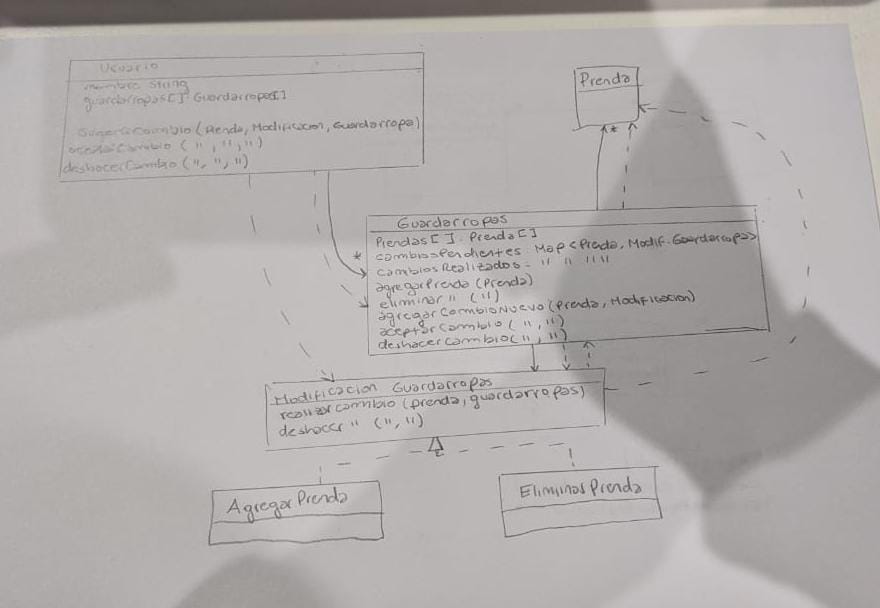 Usuario
nombre String
guardarropas[] Guardarropas[]
SugerirCambio (Prenda, Modificacion, Guardarropa)
aceptarCambio (", ", ")
deshacerCambio (", ", ")
Prenda
*
Guardarropas
Prendas[]. Prenda[]
*
cambiosPendientes Map<Prenda, Modif.Guardarropas>
cambiosRealizados = " " " "
agregarPrenda (Prenda)
eliminar " (")
agregarCambioNuevo (Prenda, Modificacion)
aceptarCambio (", ")
deshacerCambio (", ")
Modificacion Guardarropas
realizar cambio (prenda, guardarropas)
deshacer " (", ")
AgregarPrenda
EliminarPrenda